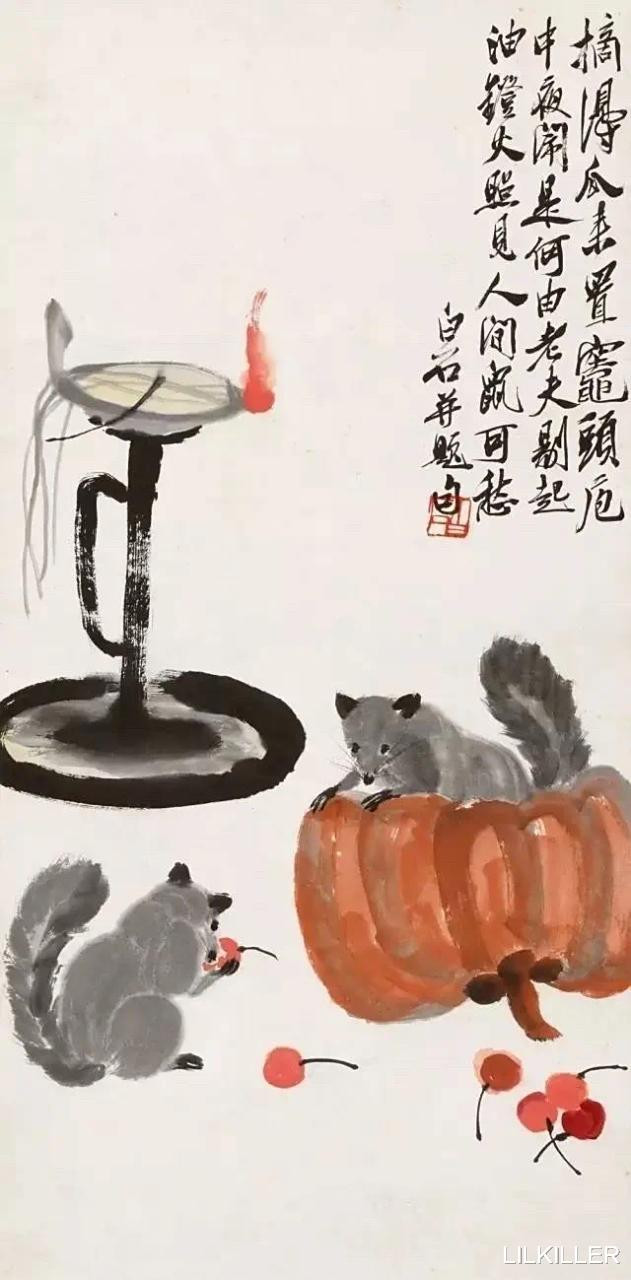 摘得瓜来置竈頭庖
中夜閙是何由老夫剔起
油鐙火照見人间鼠可愁
白石并题句
LILKILLER